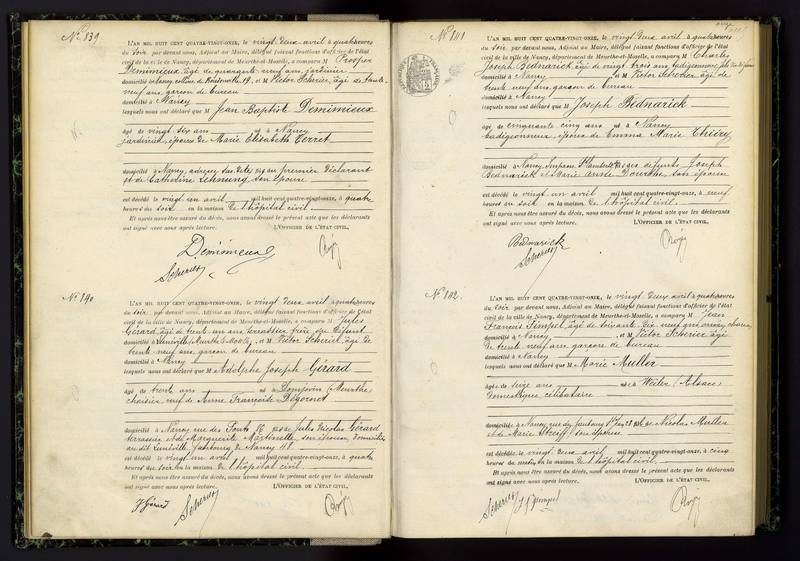 N° 139
L'AN MIL HUIT CENT QUATRE-VINGT-ONZE, le vingt deux avril à quatre heures
du soir par devant nous, Adjoint au Maire, délégué faisant fonctions d'officier de l'état
civil de la ville de Nancy, département de Meurthe-et-Moselle, a comparu M Prosper
Demimieux, âgé de quarante neuf ans, jardinier
domicilié à Nancy, et M Victor Scherier, âgé de trente
neuf ans, garçon de bureau
domicilié à Nancy
lesquels nous ont déclaré que M Jean Baptiste Demimieux
âgé de vingt six ans né à Nancy
jardinier, époux de Marie Elisabeth Terret
domicilié à Nancy, fils du premier déclarant
et de Catherine Lehnung son épouse
est décédé le vingt un avril mil huit cent quatre-vingt-onze, à quatre
heures du soir en la maison de l'hôpital civil
Et après nous être assuré du décès, nous avons dressé le présent acte que les déclarants
ont signé avec nous après lecture. L'OFFICIER DE L'ÉTAT CIVIL,
Demimieux
Scherier
N° 140
L'AN MIL HUIT CENT QUATRE-VINGT-ONZE, le vingt deux avril à quatre heures
du soir par devant nous, Adjoint au Maire, délégué faisant fonctions d'officier de l'état
civil de la ville de Nancy, département de Meurthe-et-Moselle, a comparu M Jules
Gérard, âgé de trente un ans, terrassier frère du défunt
domicilié à Lunéville (Meurthe & Mlle), et M Victor Scherier, âgé de
trente neuf ans, garçon de bureau
domicilié à Nancy
lesquels nous ont déclaré que M Adolphe Joseph Gérard
âgé de trente ans né à Dompevin (Meurthe)
veuf de Anne Françoise Dégornet
domicilié à Nancy rue des Ponts 76 fils de Jules Nicolas Gérard,
terrassier et de Marguerite Martonelle, son épouse, domiciliés
au dit Lunéville faubourg de Nancy 41
est décédé le vingt un avril mil huit cent quatre-vingt-onze, à quatre
heures du soir en la maison de l'hôpital civil
Et après nous être assuré du décès, nous avons dressé le présent acte que les déclarants
ont signé avec nous après lecture. L'OFFICIER DE L'ÉTAT CIVIL,
J Gérard
Scherier
N° 141
L'AN MIL HUIT CENT QUATRE-VINGT-ONZE, le vingt deux avril à quatre heures
du soir par devant nous, Adjoint au Maire, délégué faisant fonctions d'officier de l'état
civil de la ville de Nancy, département de Meurthe-et-Moselle, a comparu M Charles
Joseph Bédnarick âgé de vingt trois ans, badigeonneur, fils du défunt
domicilié à Nancy, et M Victor Scherier âgé de
trente neuf ans, garçon de bureau
domicilié à Nancy
lesquels nous ont déclaré que M Joseph Bednarick
âgé de cinquante cinq ans né à Nancy
badigeonneur, époux de Emma Marie Thiéry
domicilié à Nancy, fils des défunts Joseph
Bednarick et Marie Anne Dourche, son épouse
est décédé le vingt un avril mil huit cent quatre-vingt-onze, à neuf
heures du soir en la maison de l'hôpital civil
Et après nous être assuré du décès, nous avons dressé le présent acte que les déclarants
ont signé avec nous après lecture. L'OFFICIER DE L'ÉTAT CIVIL,
Bednarick
Scherier
N° 142
L'AN MIL HUIT CENT QUATRE-VINGT-ONZE, le vingt deux avril à quatre heures
du soir par devant nous, Adjoint au Maire, délégué faisant fonctions d'officier de l'état
civil de la ville de Nancy, département de Meurthe-et-Moselle, a comparu M Jean
François Simpel, âgé de soixante dix neuf ans
domicilié à Nancy, et M Victor Scherier âgé
de trente neuf ans garçon de bureau
domicilié à Nancy
lesquels nous ont déclaré que M Marie Muller
âgée de seize ans née à Weiler (Alsace)
domestique, célibataire
domicilié à Nancy, rue du faubourg fille de Nicolas Muller
et de Marie Streiff son épouse
est décédé le vingt un avril mil huit cent quatre-vingt-onze, à cinq
heures du en la maison de l'hôpital civil
Et après nous être assuré du décès, nous avons dressé le présent acte que les déclarants
ont signé avec nous après lecture. L'OFFICIER DE L'ÉTAT CIVIL,
Scherier